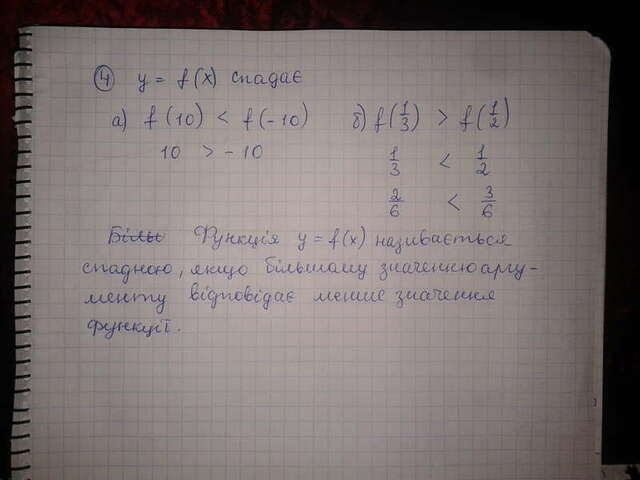 ④ y = f(x) спадає
а) f(10) < f(-10) б) f(1/3) > f(1/2)
10 > -10 1/3 < 1/2
2/6 < 3/6
Більш Функція y = f(x) називається
спадною, якщо більшому значенню аргу-
менту відповідає менше значення
функції.